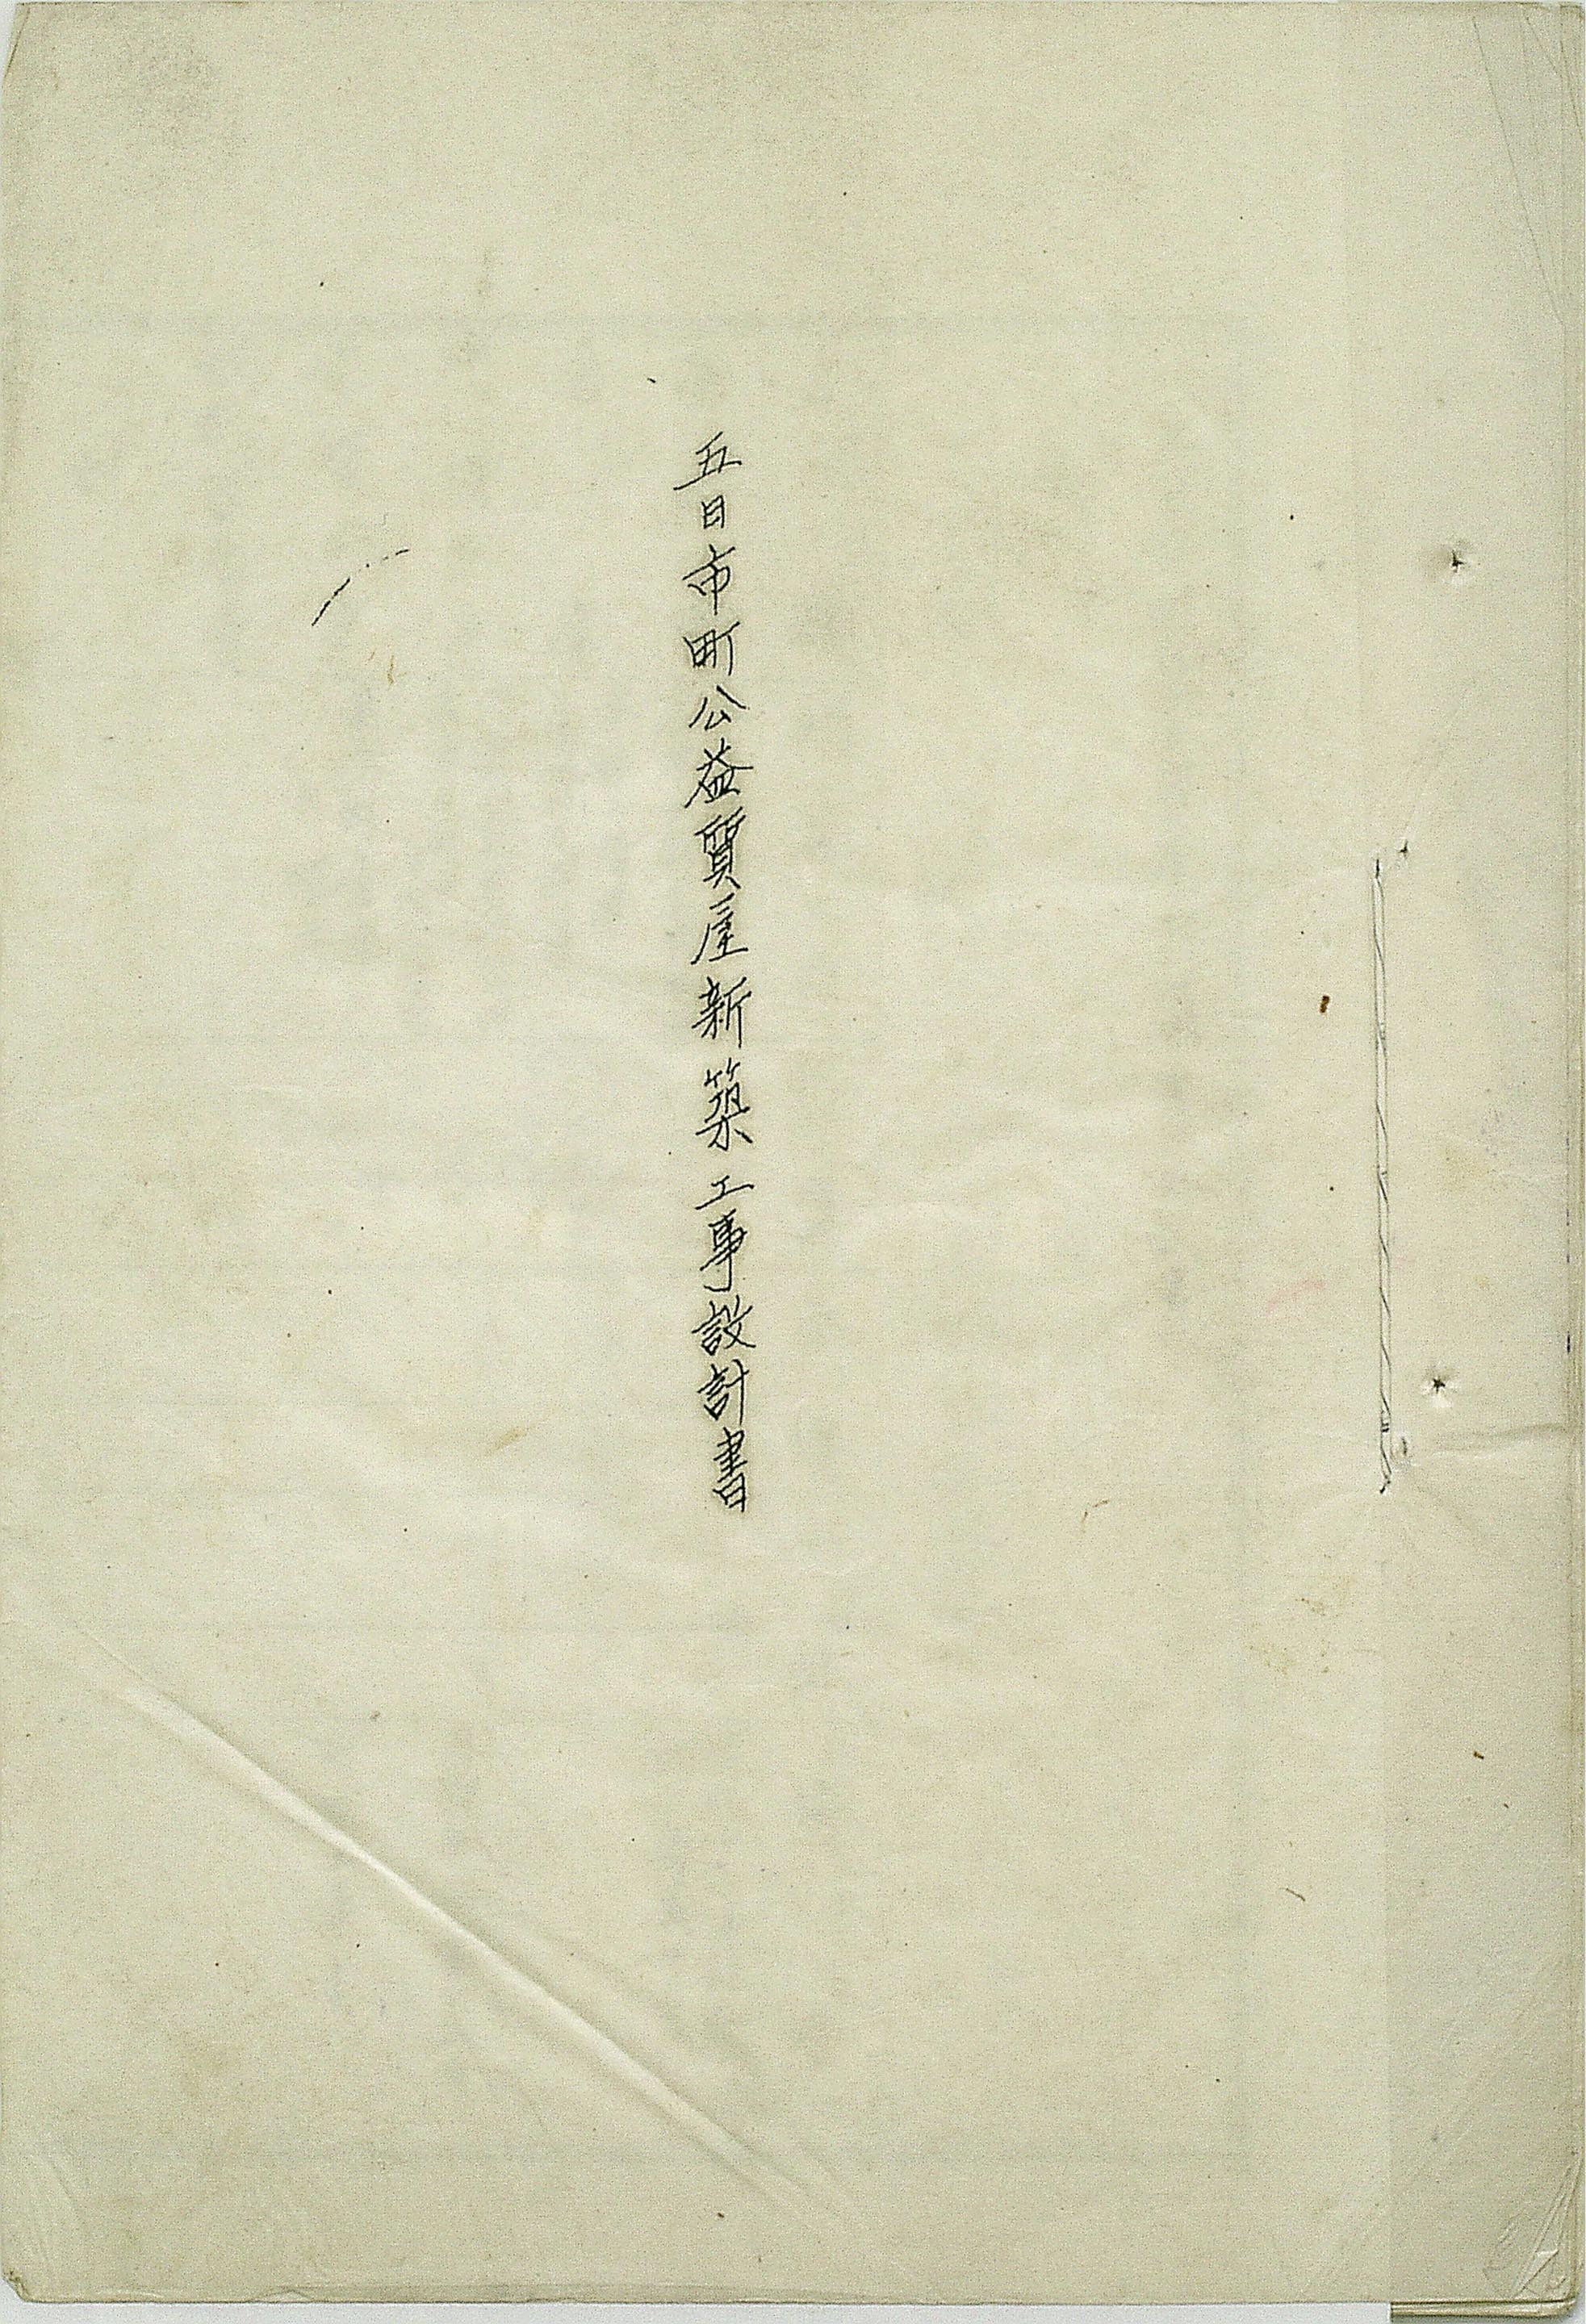 五日市町公益質屋新築工事設計書